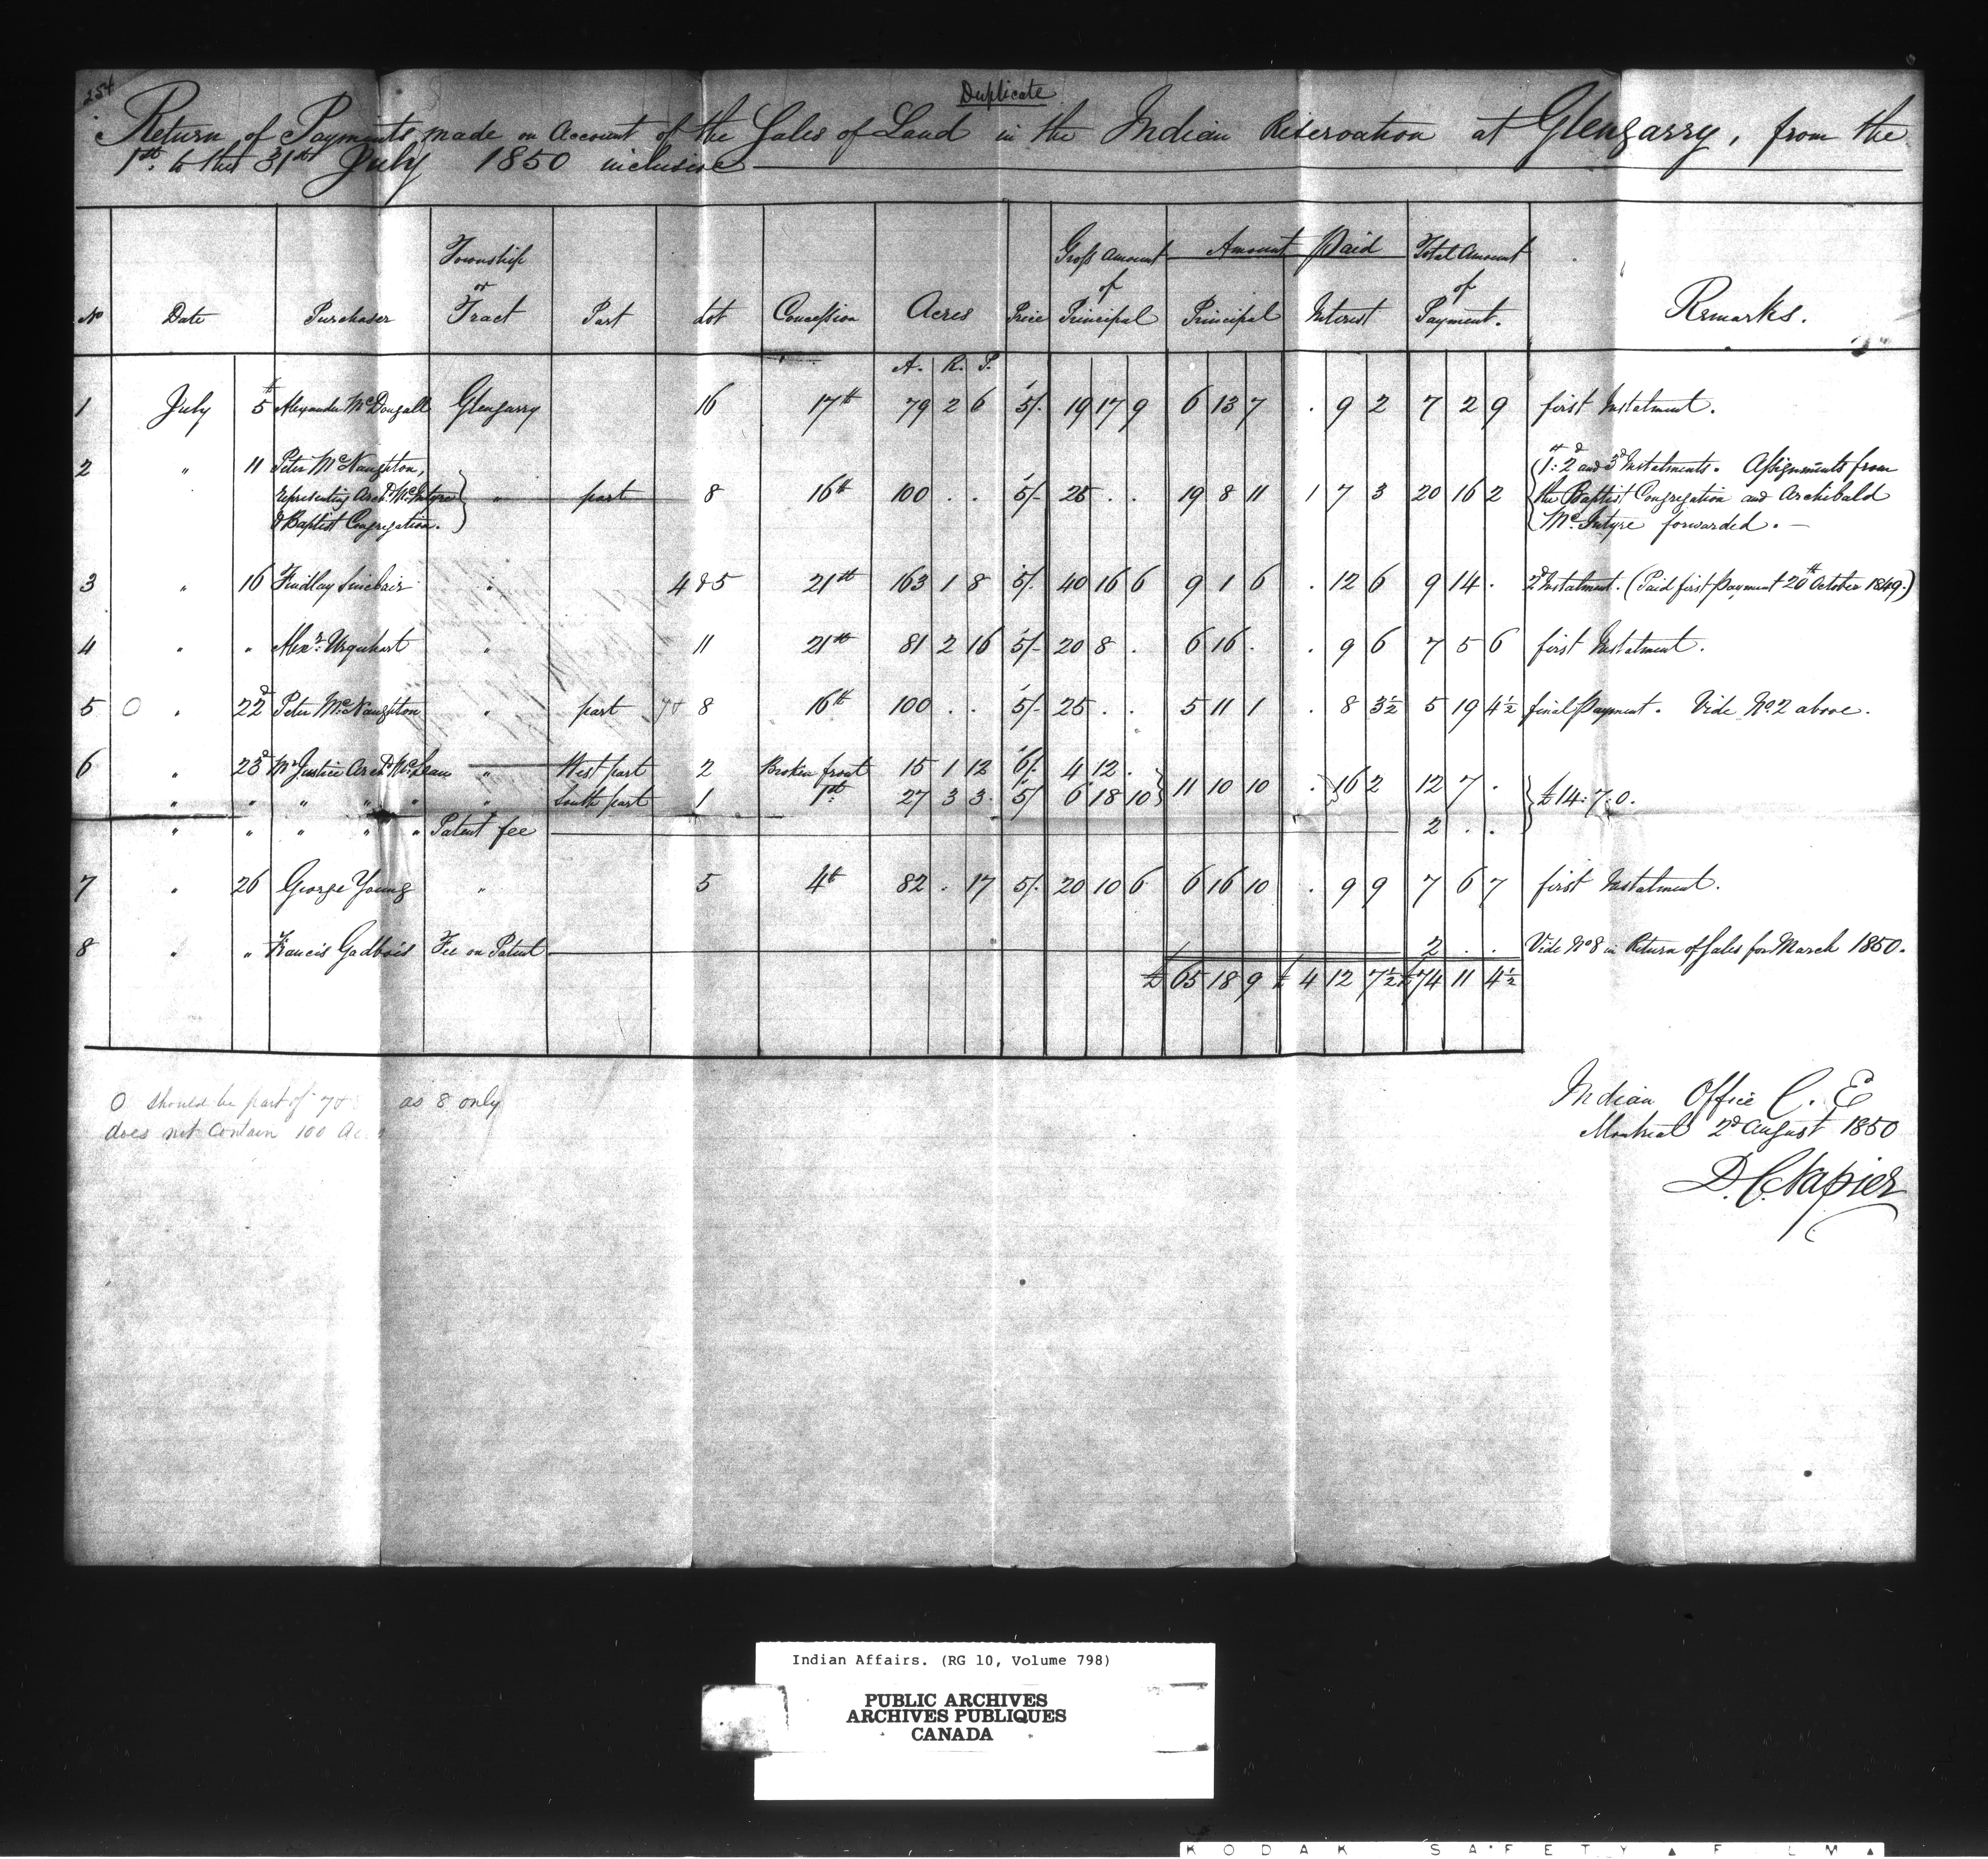 254
Duplicate
Return of Payments made on Account of the Sales of Land in the Indian Reservation at Glengarry, from the
1st. to the 31st July 1850 inclusive
No Date Purchaser Township or Tract Part Lot Concession Acres Price Gross Amount of Principal Amount Paid Principal Interest Total Amount of Payment. Remarks.
A. R. P.
1 July 5th Alexander McDougall Glengarry 16 17th 79 2 6 5/. 19 17 9 6 13 7 . 9 2 7 2 9 first Instalment.
2 " 11 Peter McNaughton,
representing Archd. McIntyre " part 8 16th 100 . . 5/- 25 . . 19 8 11 1 7 3 20 16 2
& Baptist Congregation.
1st: 2d and 3d Instalments. Assignments from
the Baptist Congregation and Archibald
McIntyre forwarded. —
3 " 16 Findlay Sinclair " 4 & 5 21st 163 1 8 5/. 40 16 6 9 1 6 . 12 6 9 14 . 2d Instalment. (Paid first payment 20th October 1849.)
4 " " Alexr. Urquhart " 11 21st 81 2 16 5/- 20 8 . 6 16 . . 9 6 7 5 6 first Instalment.
5 O " 22d Peter McNaughton " part 7 & 8 16th 100 . . 5/- 25 . . 5 11 1 . 8 3½ 5 19 4½ final payment. Vide No. 2 above.
6 " 23d Mr Justice Archd. McLean " West part 2 Broken front 15 1 12 6/. 4 12 . 11 10 10 . 16 2 12 7 . £14:7:0.
" " " " " " South part 1 1st: 27 3 3 5/ 6 18 10
" " " " " Patent fee 2 . .
7 " 26 George Young " 5 4th 82 . 17 5/. 20 10 6 6 16 10 . 9 9 7 6 7 first Instalment.
8 " " Francis Gadbois Fee on Patent 2 . . Vide No 8 in Return of Sales for March 1850.
£ 65 18 9 £ 4 12 7½ £ 74 11 4½
O should be part of 7 & as 8 only
does not contain 100 Ac
Indian Office C. E
Montreal 2d August 1850
D. C. Napier
Indian Affairs. (RG 10, Volume 798)
PUBLIC ARCHIVES
ARCHIVES PUBLIQUES
CANADA
KODAK SAFETY F LM